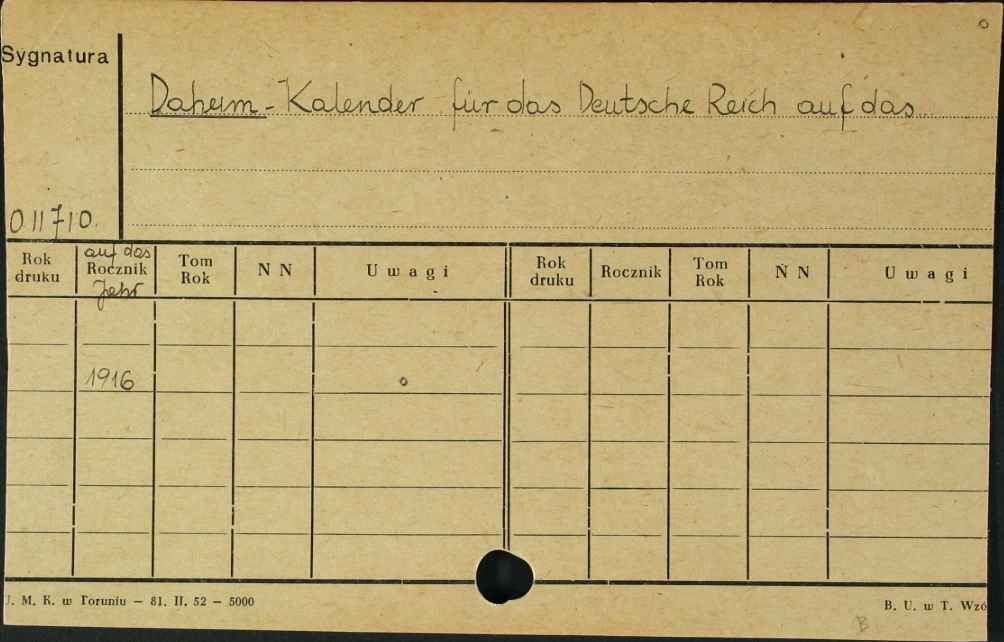 Sygnatura
Daheim - Kalender für das Deutsche Reich auf das...
011710.
auf das
Rok druku Rocznik Tom Rok N N Uwagi Rok druku Rocznik Tom Rok N N Uwagi
Jahr
1916
J. M. K. w Toruniu — 81. II. 52 — 5000
B. U. w T. Wzó
B